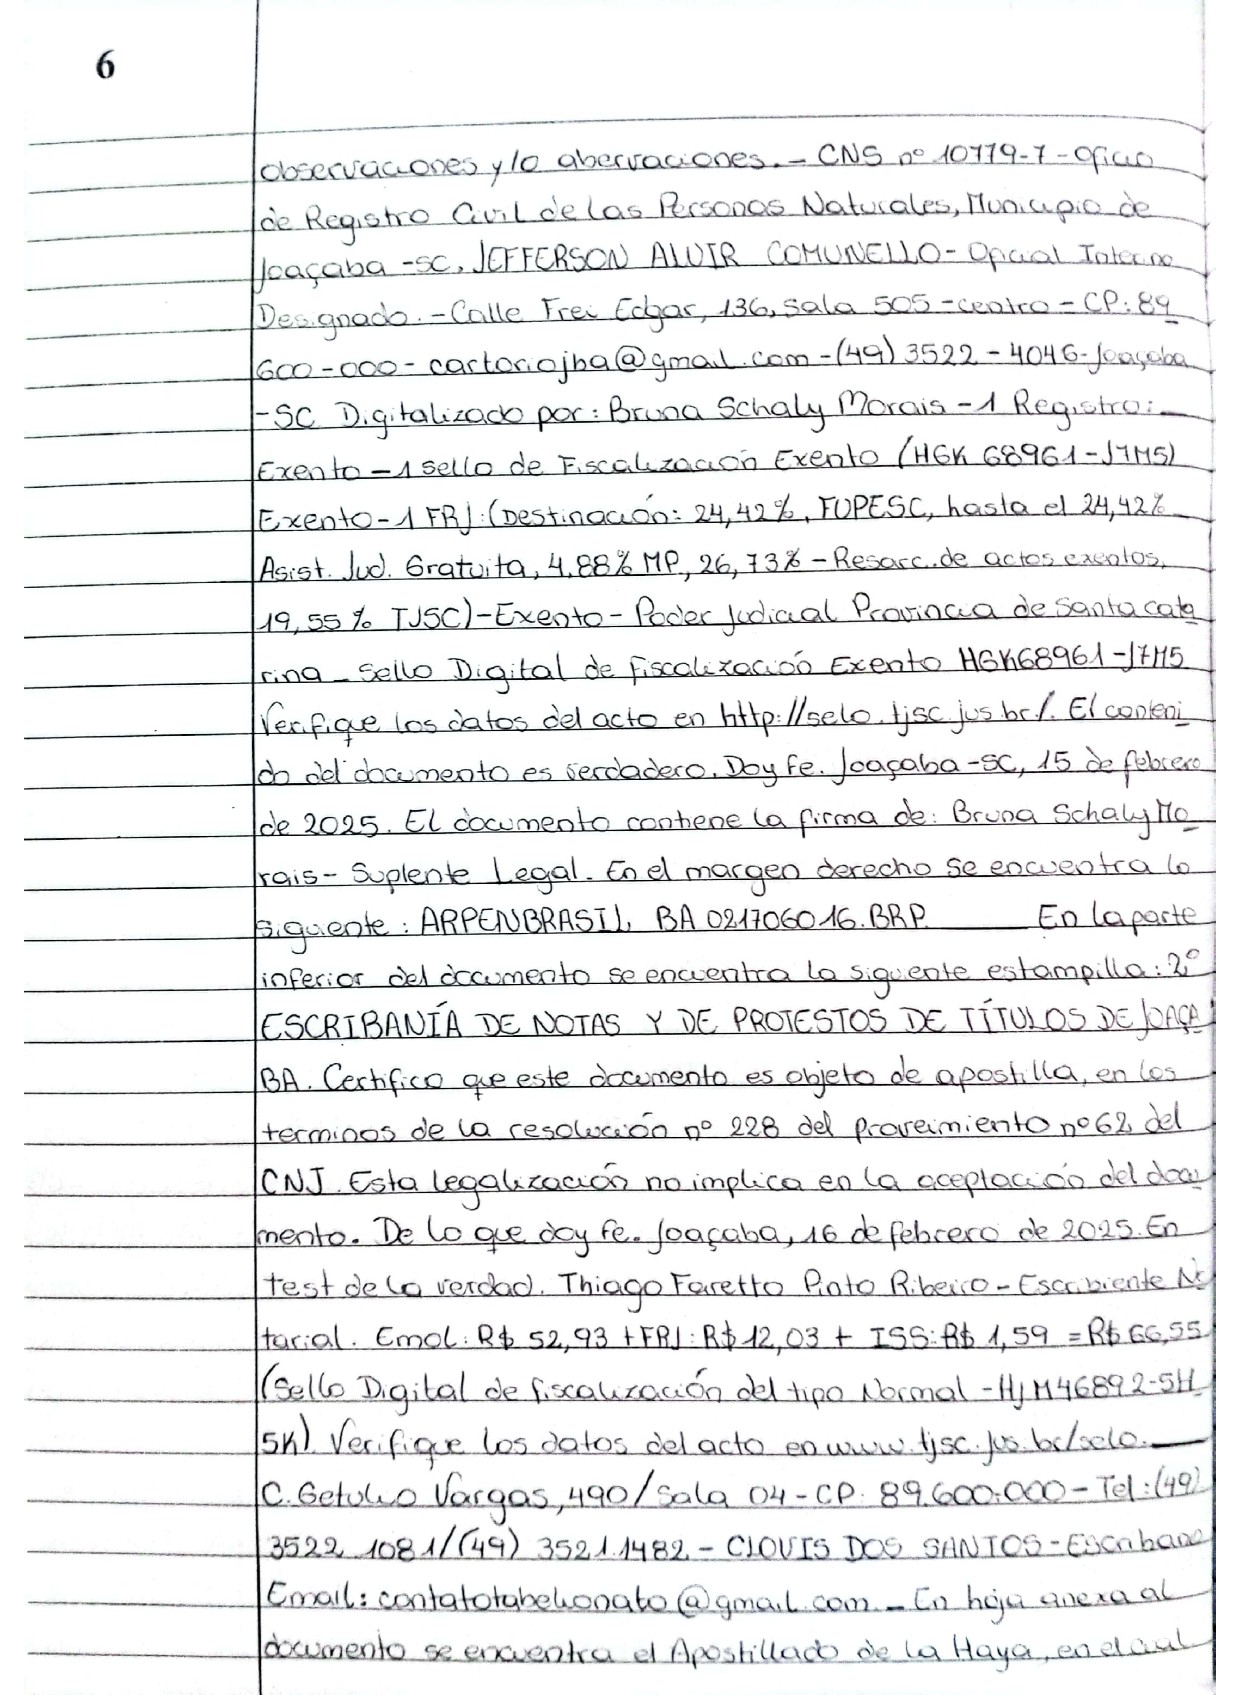 6
observaciones y/o abervaciones. - CNS nº 10779-7 - Oficio
de Registro Civil de las Personas Naturales, Municipio de
Joaçaba -SC, JEFFERSON ALVIR COMUNELLO - Oficial Interno
Designado. - Calle Frei Edgar, 136, Sala 505 - centro - CP: 89
600-000 - cartoriojba@gmail.com - (49) 3522 - 4046 - Joaçaba
-SC Digitalizado por: Bruna Schaly Morais - 1 Registro:
Exento - 1 Sello de Fiscalización Exento (HGK 68961-J7M5)
Exento - 1 FRJ: (Destinación: 24,42%, FUPESC, hasta el 24,42%
Asist. Jud. Gratuita, 4,88% MP, 26,73% - Resarc. de actos exentos,
19,55% TJSC) - Exento - Poder Judicial Provincia de Santa Cata
rina - Sello Digital de Fiscalización Exento HGK68961-J7M5
Verifique los datos del acto en http://selo.tjsc.jus.br/. El conteni
do del documento es verdadero. Doy fe. Joaçaba -SC, 15 de febrero
de 2025. El documento contiene la firma de: Bruna Schaly Mo
rais - Suplente Legal. En el margen derecho se encuentra lo
siguente: ARPENBRASIL BA 021706016.BRP. En la parte
inferior del documento se encuentra la siguente estampilla: 2º
ESCRIBANÍA DE NOTAS Y DE PROTESTOS DE TÍTULOS DE JOAÇA
BA. Certifico que este documento es objeto de apostilla, en los
terminos de la resolución nº 228 del proveimiento nº 62 del
CNJ. Esta legalización no implica en la aceptación del docu
mento. De lo que doy fe. Joaçaba, 16 de febrero de 2025. En
test de la verdad. Thiago Faretto Pinto Ribeiro - Escribiente No
tarial. Emol: R$ 52,93 + FRJ: R$ 12,03 + ISS: R$ 1,59 = R$ 66,55
(Sello Digital de fiscalización del tipo Normal - HJM46892-5H
5K). Verifique los datos del acto en www.tjsc.jus.br/selo.
C. Getulio Vargas, 490/Sala 04 - CP: 89.600.000 - Tel: (49)
3522 1081/(49) 3521.1482 - CLOVIS DOS SANTOS - Escribano
Email: contatotabelionato@gmail.com - En hoja anexa al
documento se encuentra el Apostillado de la Haya, en el cual